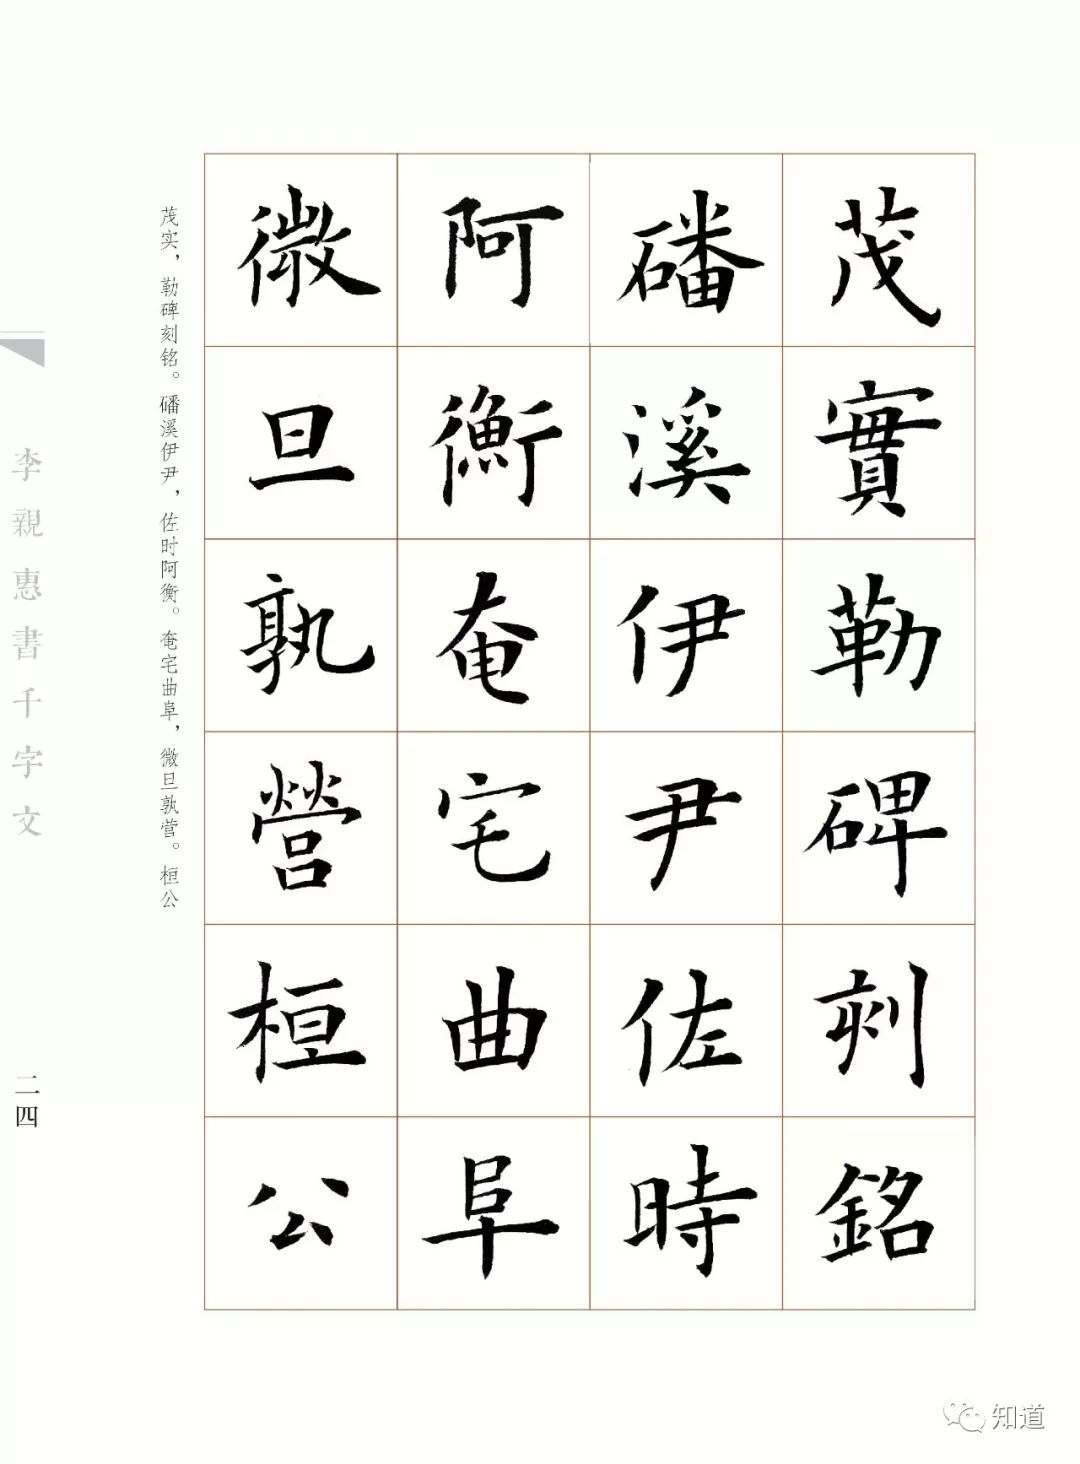 茂實勒碑刻銘
磻溪伊尹佐時
阿衡奄宅曲阜
微旦孰營桓公
茂实，勒碑刻铭。磻溪伊尹，佐时阿衡。奄宅曲阜，微旦孰营。桓公
李親惠書千字文
二四
知道